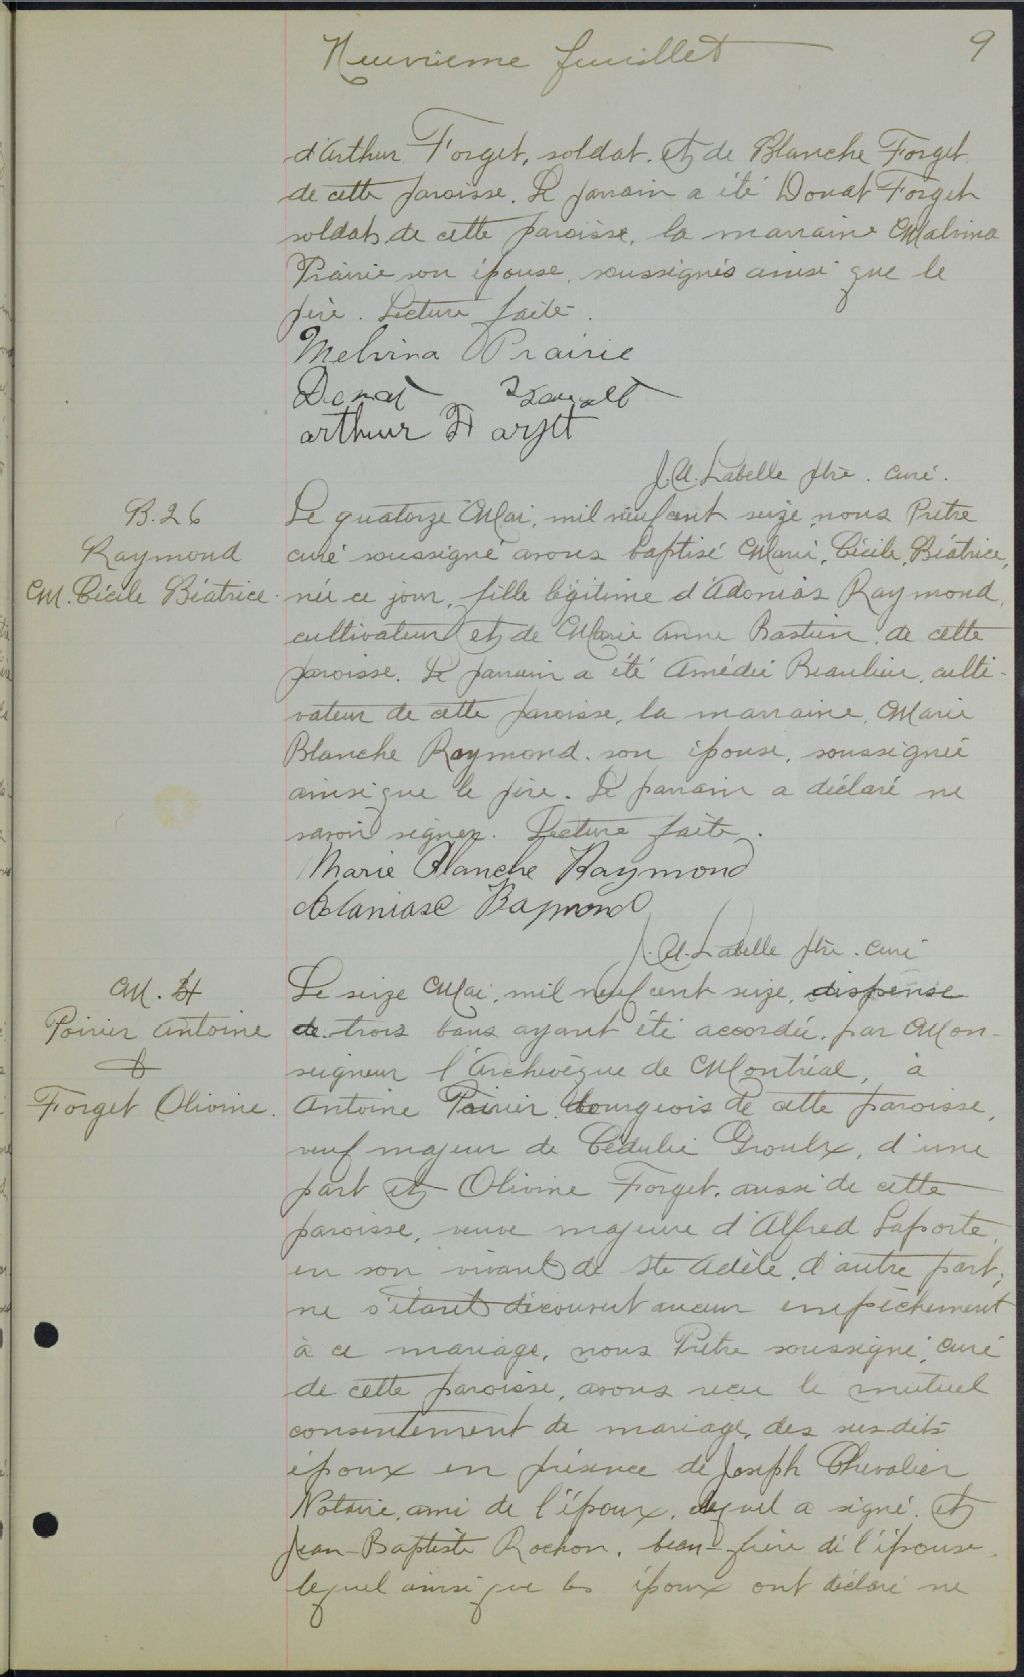 Neuvième feuillet 9
d'Arthur Forget, soldat, et de Blanche Forget
de cette paroisse. Le parrain a été Donat Forget
soldat, de cette paroisse, la marraine Malvina
Prairie son épouse, soussignés ainsi que le
père. Lecture faite.
Melvina Prairie
Donat
arthur Forget
J.A. Labelle ptre. curé.
B.26
Raymond
M. Cécile Béatrice.
Le quatorze Mai, mil neuf cent seize, nous Prêtre
curé soussigné avons baptisé Marie, Cécile, Béatrice,
née ce jour, fille légitime d'Adonias Raymond,
cultivateur et de Marie Anne Bastien de cette
paroisse. Le parrain a été Amédée Beaulieu, culti-
vateur de cette paroisse, la marraine, Marie
Blanche Raymond son épouse, soussignée
ainsi que le père. Le parrain a déclaré ne
savoir signer. Lecture faite.
Marie Blanche Raymond
Raymond
J.A. Labelle ptre. curé
M. 4
Poirier Antoine
&
Forget Olivine.
Le seize Mai, mil neuf cent seize, dispense
de trois bans ayant été accordée, par Mon-
seigneur l'Archevêque de Montréal, à
Antoine Poirier, bourgeois de cette paroisse,
veuf majeur de Cédulie Groulx, d'une
part et Olivine Forget, aussi de cette
paroisse, veuve majeure d'Alfred Laporte,
en son vivant de Ste Adèle, d'autre part;
ne s'étant découvert aucun empêchement
à ce mariage, nous Prêtre soussigné, curé
de cette paroisse, avons reçu le mutuel
consentement de mariage, des susdits
époux en présence de Joseph Chevalier
Notaire, ami de l'époux, lequel a signé, et
Jean-Baptiste Rochon, beau-frère de l'épouse,
lequel ainsi que les époux ont déclaré ne